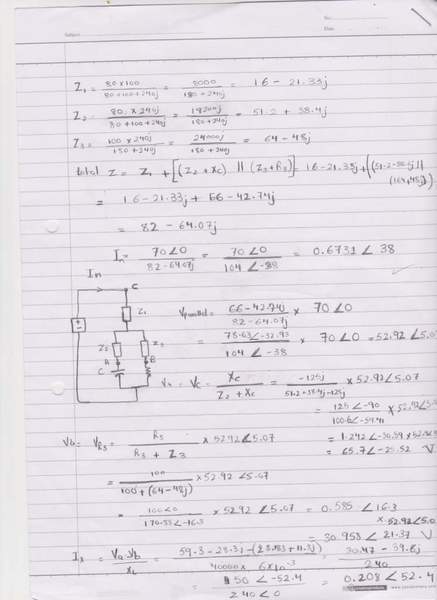 Subject
No.
Date
Z1 = 80×100 / 80+100+240j = 8000 / 180+240j = 16 - 21.33j
Z2 = 80×240j / 80+100+240j = 19200j / 180+240j = 51.2 + 38.4j
Z3 = 100×240j / 180+240j = 24000j / 180+240j = 64 - 48j
total Z = Z1 + [(Z2 + Xc) || (Z3+R3)] =
= 16-21.33j + 66-42.74j
= 82 - 64.07j
In = 70∠0 / 82-64.07j = 70∠0 / 104∠-38 = 0.6731∠38
In
C
Z1
Z2
Z3
A
B
C
Vparallel = 66-42.74j / 82-64.07j × 70∠0
= 78.63∠-32.93 / 104∠-38 × 70∠0 = 52.92∠5.07
VA = Vc = Xc / Z2 + Xc = -125j / 51.2+38.4j-125j × 52.92∠5.07
= 125∠-90 / 100.6∠-59.41 × 52.92∠5.07
= 1.242∠-30.59 × 52.92
= 65.7∠-25.52 V
VR3 = R3 / R3 + Z3 × 52.92∠5.07
= 100 / 100+(64-48j) × 52.92∠5.07
= 100∠0 / 170.88∠-16.3 × 52.92∠5.07 = 0.585∠16.3 × 52.92∠5.07
= 30.958∠21.37 V
= Va-Vb / XL = / 40000×6×10^-3 = / 240
= 50∠-52.4 / 240∠0 = 0.208∠52.4